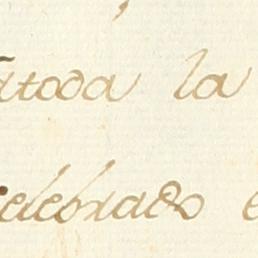 átoda la
celebrado e